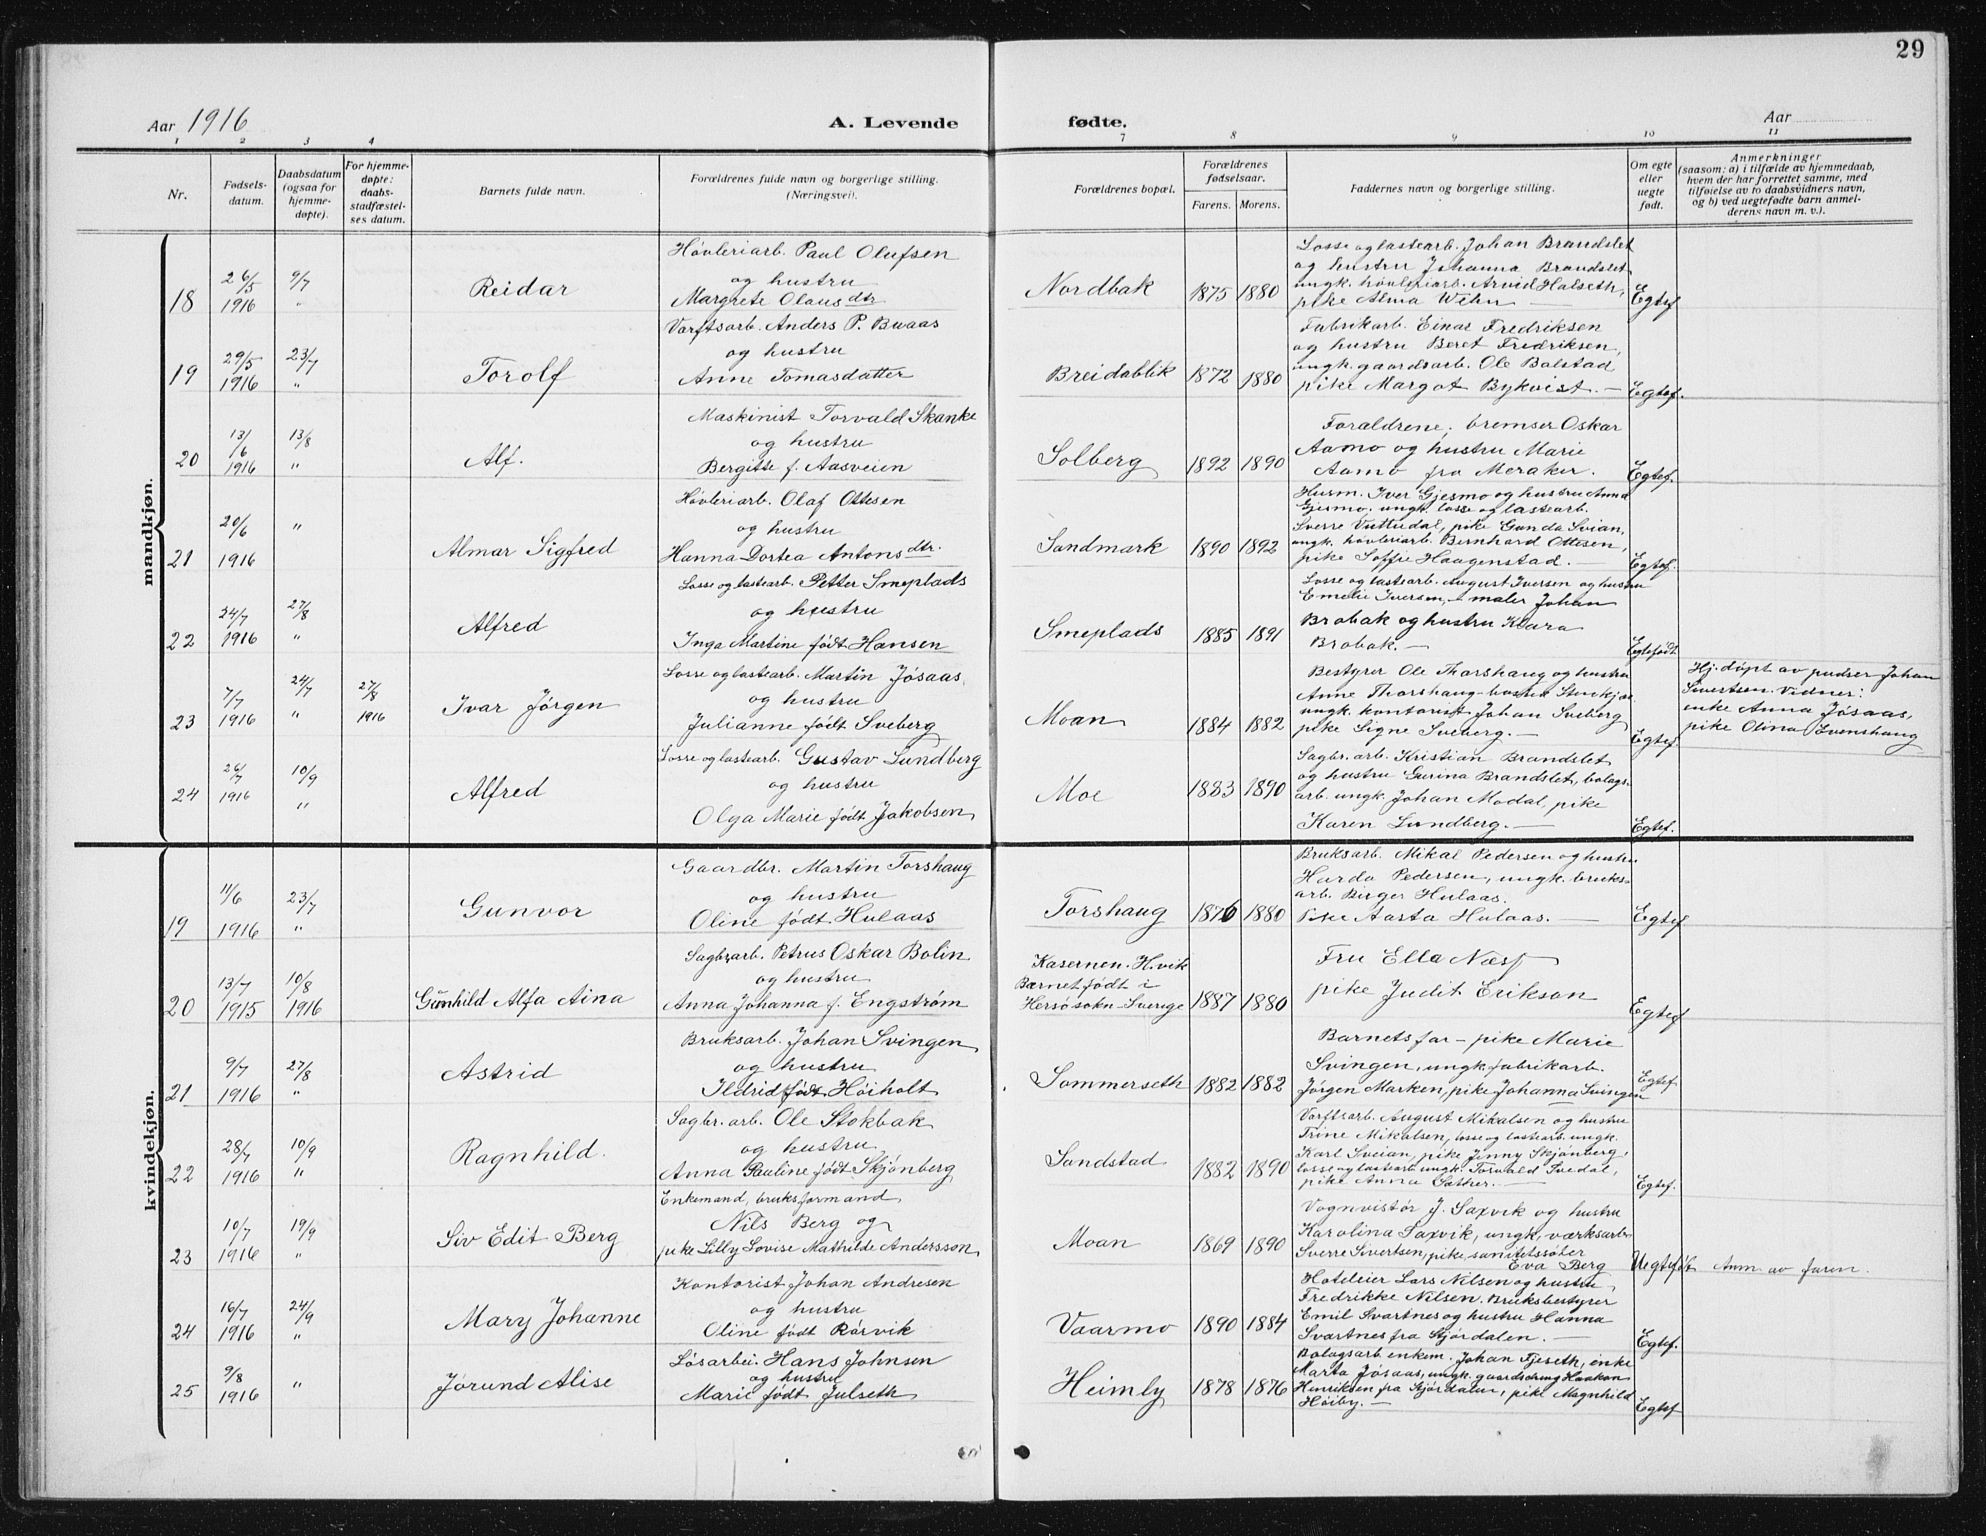 29
Aar 1916
A. Levende
fødte.
Aar
1 2 3 4 7 8 9 10 11
Nr.
Fødsels-
datum.
Daabsdatum
(ogsaa for
hjemme-
døpte).
For hjemme-
døpte:
daabs-
stadfæstel-
ses datum.
Barnets fulde navn.
Forældrenes fulde navn og borgerlige stilling.
(Næringsvei).
Forældrenes bopæl.
Forældrenes
fødselsaar.
Farens. Morens.
Faddernes navn og borgerlige stilling.
Om egte
eller
uegte
født.
Anmerkninger
(saasom: a) i tilfælde av hjemmedaab,
hvem der har forrettet samme, med
tilføielse av to daabsvidners navn,
og b) ved uegtefødte barn anmel-
derens navn m. v.).
mandkjøn.
18
26/5
1916
9/7
"
Reidar
Høvleriarb. Paul Olufsen
og hustru
Margrete Olausdtr
Nordbak
1875 1880
Losse og lastearb. Johan Brandslet
og hustru Johanna Brandslet
ungk. høvleriarb. Arvid Halseth,
pike Alma Wehn —
Egtef.
19
29/5
1916
23/7
"
Torolf
Varftsarb. Anders P. Buaas
og hustru
Anne Tomasdatter
Breidablik
1872 1880
Fabrikarb. Einar Fredriksen
og hustru Beret Fredriksen,
ungk. gaardsarb. Ole Bolstad
pike Margot Bykvist. —
Egtef.
20
13/6
1916
13/8
"
Alf.
Maskinist Torvald Skanke
og hustru
Bergitte f. Aasveien
Solberg
1892 1890
Forældrene, bremser Oskar
Aamo og hustru Marie
Aamo fra Meraker.
Egtef.
21
20/6
1916
"
Almar Sigfred
Høvleriarb. Olaf Ottesen
og hustru
Hanna Dortea Antonsdtr.
Sandmark
1890 1892
Husm. Iver Gjesmo og hustru Anna
Gjesmo. ungk. losse og lastearb.
Sverre Vuttudal, pike Gunda Svian,
ungk. høvleriarb. Bernhard Ottesen,
pike Soffie Haagenstad. —
Egtef.
22
24/7
1916
27/8
"
Alfred
Losse og lastearb. Petter Smeplads
og hustru
Inga Martine født Hansen
Smeplads
1885 1891
Losse og lastearb. August Iversen og hustru
Emelie Iversen, maler Johan
Brobak og hustru Klara
Brobak. —
Egtefødt
23
7/7
1916
24/7
"
27/8
1916
Ivar Jørgen
Losse og lastearb. Martin Jøsaas
og hustru
Julianne født Sveberg
Moan
1884 1882
Bestyrer Ole Thorshaug og hustru
Anne Thorshaug
ungk. kontorist Johan Sveberg
pike Signe Sveberg. —
Egtef.
Hj. døpt av pudser Johan
Sivertsen. Vidner:
enke Anna Jøsaas,
pike Olina Svenshaug
24
26/7
1916
10/9
"
Alfred
Losse og lastearb. Gustav Lundberg
og hustru
Olga Marie født Jakobsen
Moe
1883 1890
Sagbr. arb. Kristian Brandslet
og hustru Gurina Brandslet, bolags-
arb. ungk. Johan Modal, pike
Karen Lundberg. —
Egtef.
kvindekjøn.
19
11/6
1916
23/7
"
Gunvor
Gaardbr. Martin Torshaug
og hustru
Oline født Hulaas
Torshaug
1876 1880
Bruksarb. Mikal Pedersen og hustru
Harda Pedersen, ungk. bruks-
arb. Birger Hulaas.
Pike Aasta Hulaas. —
Egtef
20
13/7
1915
10/8
1916
Gunhild Alfa Aina
Sagbrarb. Petrus Oskar Bolin
og hustru
Anna Johanna f. Engstrøm
Kasernen. H.vik
Barnet født i
Hersøsokn-Sverige
1887 1880
Fru Ella Næss
pike Judit Erikson
Egtef
21
9/7
1916
27/8
"
Astrid
Bruksarb. Johan Svingen
og hustru
Ildrid født Høiholt
Sommerseth
1882 1882
Barnets far — pike Marie
Svingen, ungk. fabrikarb.
Jørgen Marken, pike Johanna Svingen
Egtef.
22
28/7
1916
10/9
"
Ragnhild.
Sagbr. arb. Ole Stokbak
og hustru
Anna Pauline født Skjønberg
Sandstad
1882 1890
Varftsarb. August Mikalsen og hustru
Trine Mikalsen, losse og lastearb. ungk.
Karl Sveian, pike Jenny Skjønberg,
losse og lastearb. ungk. Torvald Svedal,
pike Anna Sæther. —
Egtef.
23
10/7
1916
19/9
"
Siv Edit Berg
Enkemand, bruksformand
Nils Berg og
pike Lilly Lovise Mathilde Andersson
Moan
1869 1890
Vognvisitør J. Saxvik og hustru
Karolina Saxvik, ungk. værksarb.
Sverre Sivertsen, pike sanitetssøster
Eva Berg
Uegtefødt
Anm av faren.
24
16/7
1916
24/9
"
Mary Johanne
Kontorist Johan Andresen
og hustru
Oline født Rørvik
Vaarmo
1890 1884
Hoteleier Lars Nilsen og hustru
Fredrikke Nilsen. Bruksbestyrer
Emil Svartnes og hustru Hanna
Svartnes fra Stjørdalen. —
Egtef.
25
9/8
1916
"
Jørund Alise
Løsarbei. Hans Johnsen
og hustru
Marie født Julseth
Heimly
1878 1876
Bolagsarb enkem. Johan Fjeseth, enke
Marta Jøsaas, ungk. gaardsdreng Haakon
Henriksen fra Stjørdalen, pike Magnhild
Høiby. —
Egtef